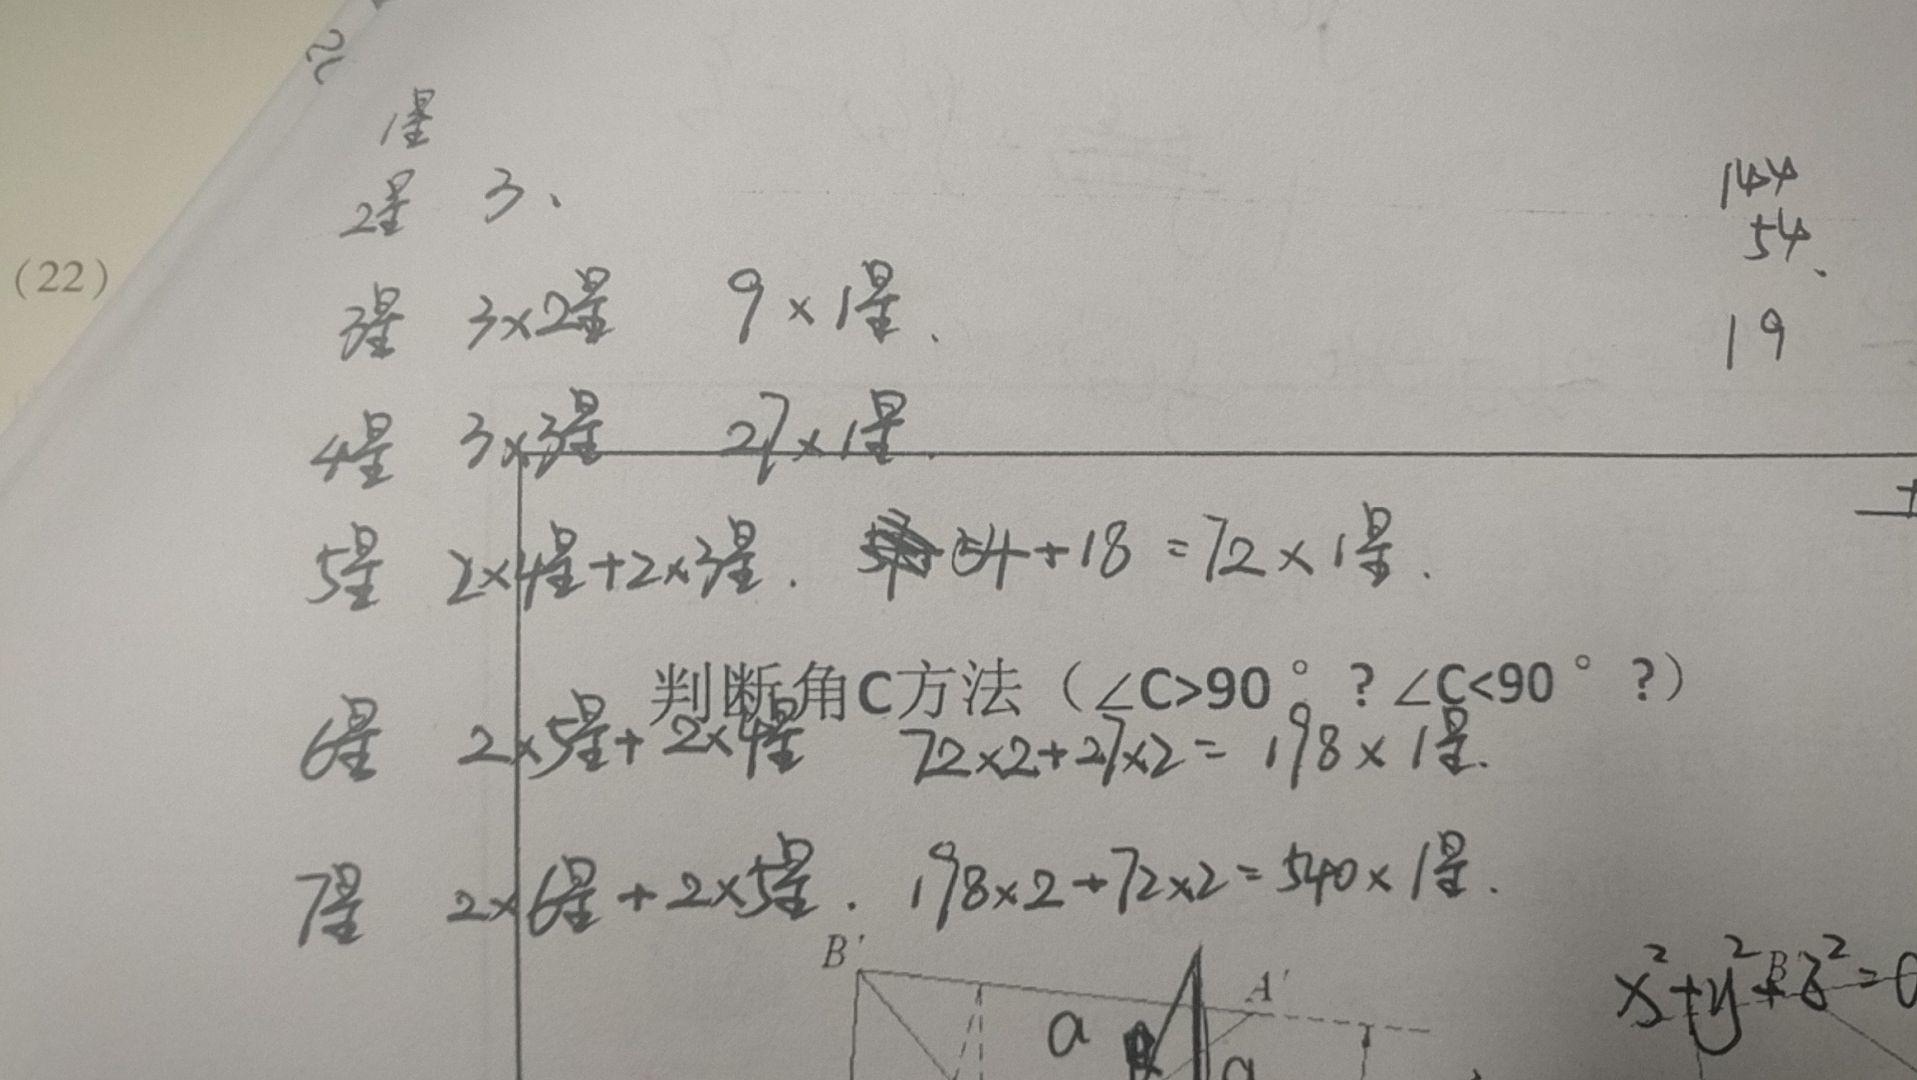 1星
2星 3、
144
54.
(22)
3星 3×2星 9×1星.
19
4星 3×3星 27×1星.
5星 2×4星+2×3星. 54+18=72×1星.
判断角C方法（∠C>90°？∠C<90°？）
6星 2×5星+2×4星 72×2+27×2=198×1星.
7星 2×6星+2×5星. 198×2+72×2=540×1星.
B′
A′
x²+y²+z²=0
a
a